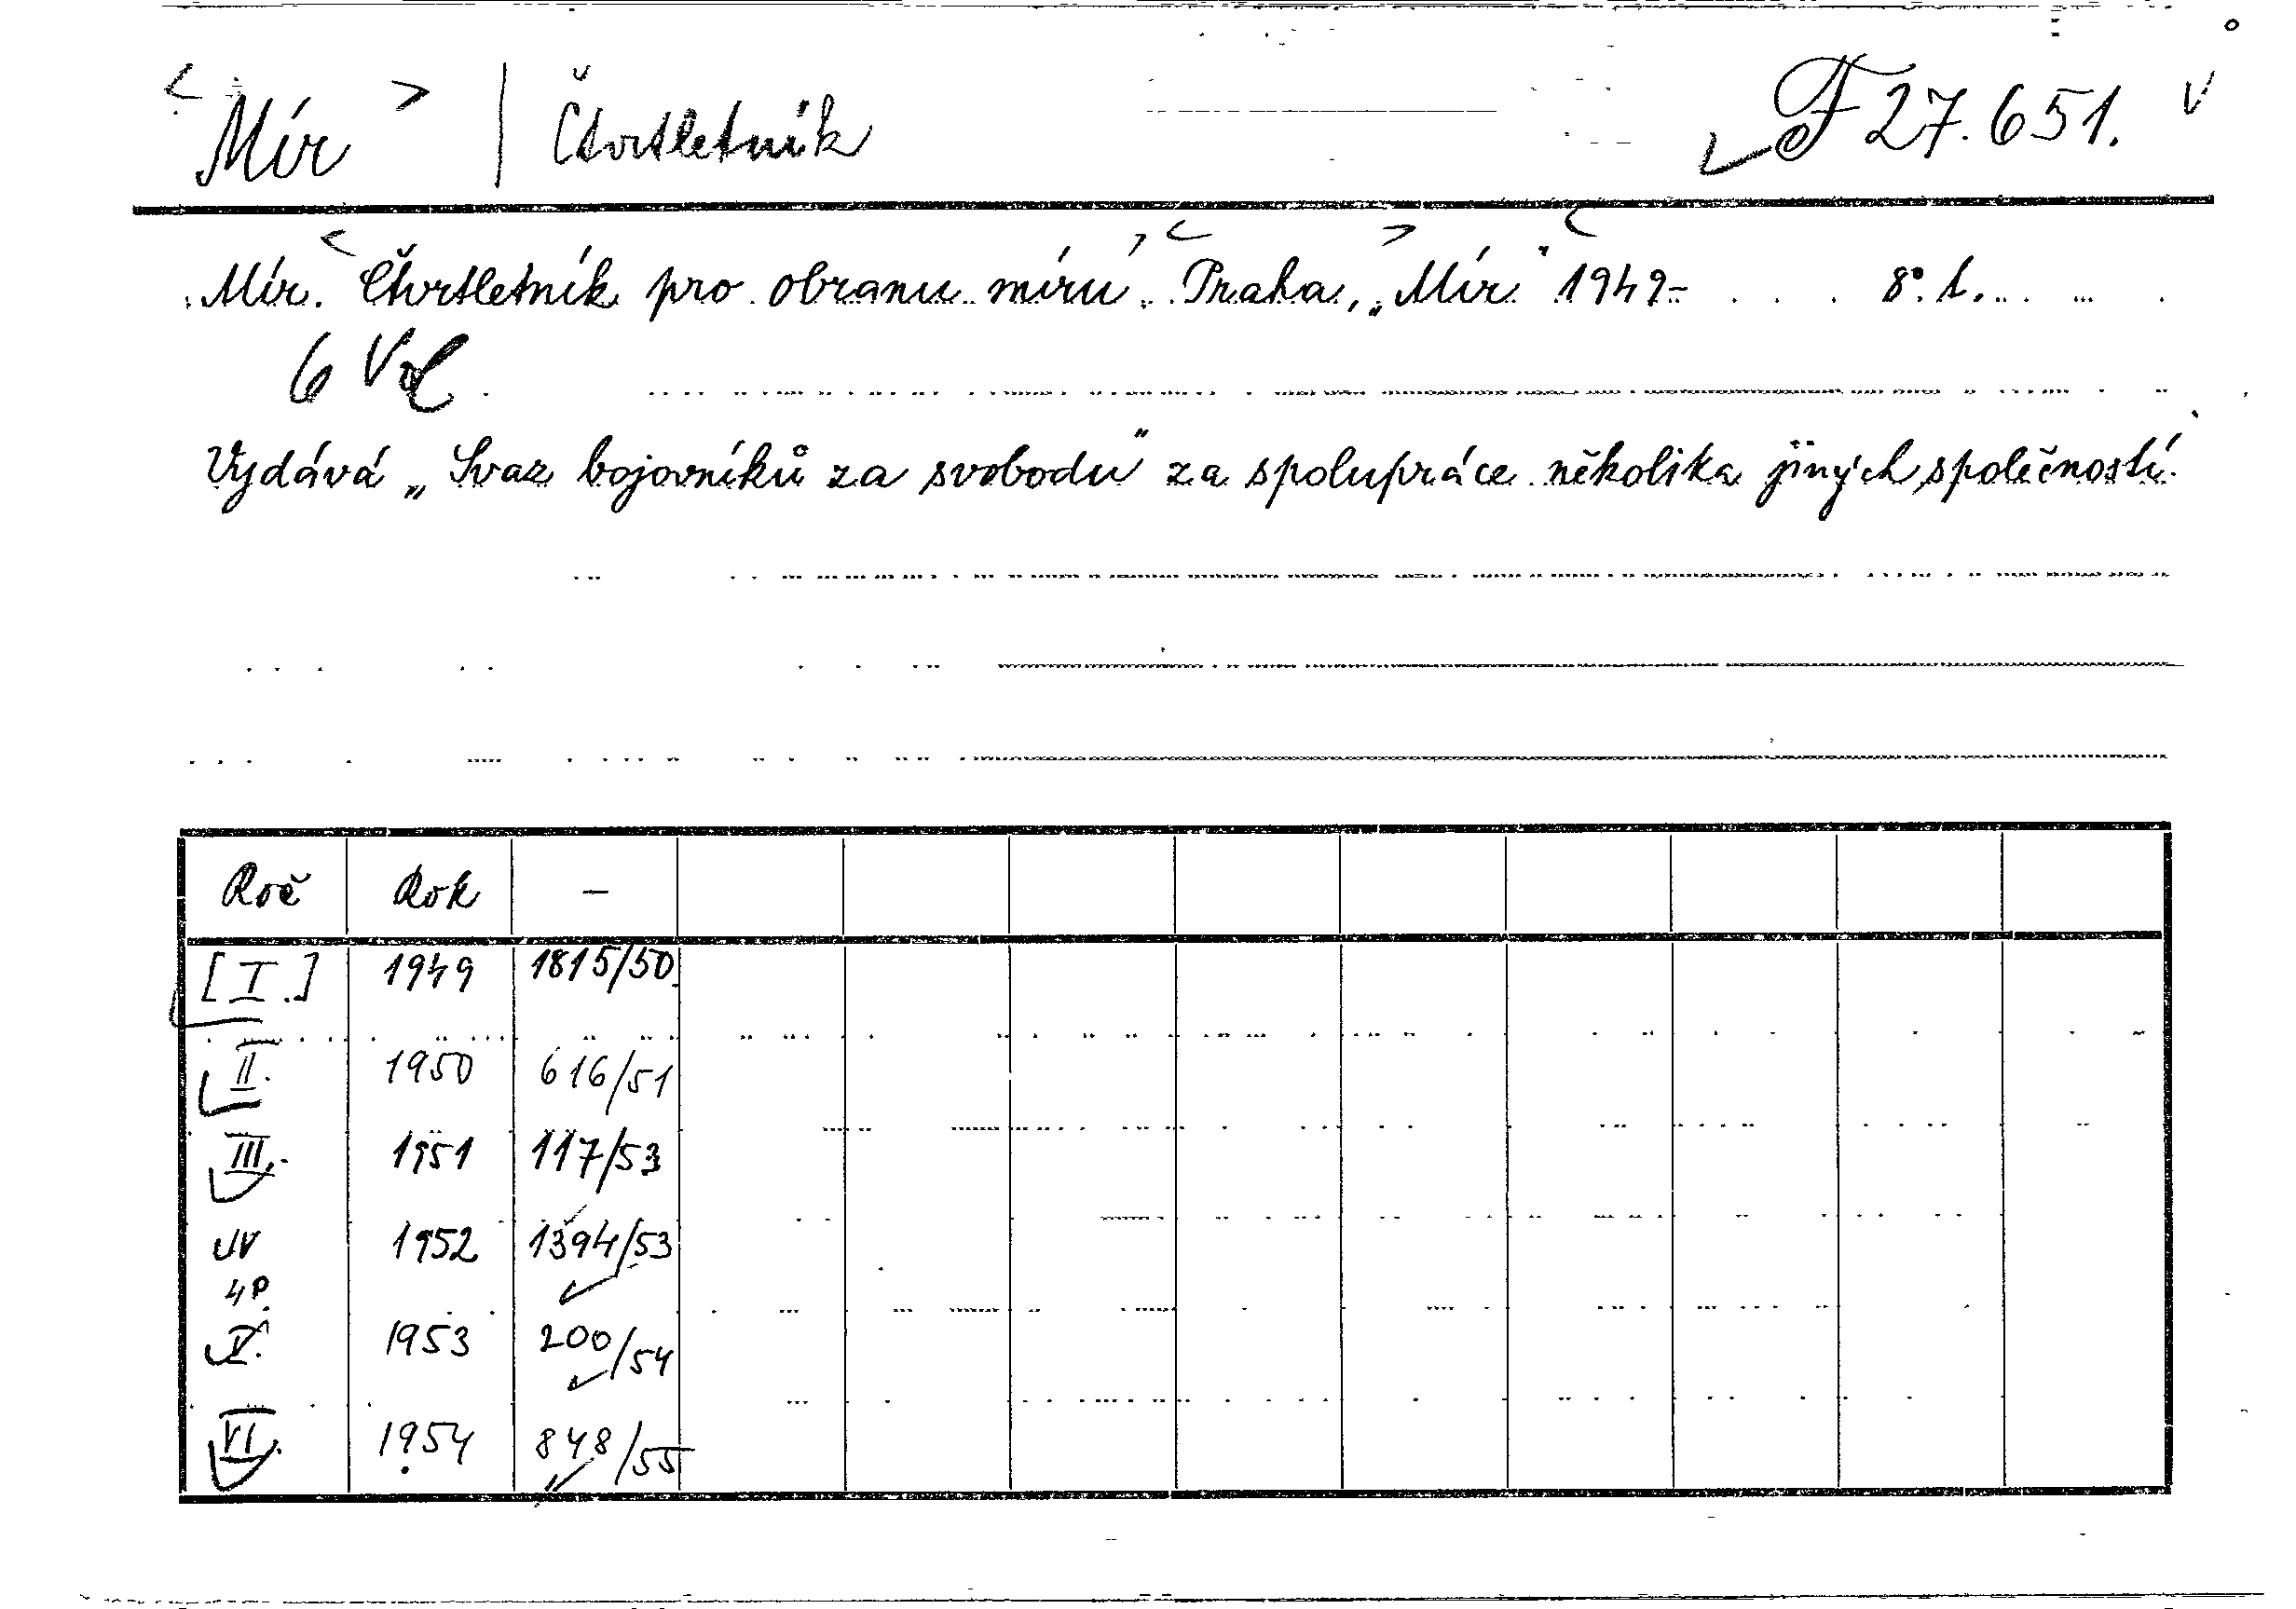 < Mír > | Čtvrtletník F 27.651.
Mír. Čtvrtletník pro obranu míru. Praha, „Mír" 1949- 8°.
6 Vol.
Vydává „Svaz bojovníků za svobodu" za spolupráce několika jiných společností.
Roč Rok –
[I.] 1949 1815/50
II. 1950 616/51
III. 1951 117/53
IV 1952 1394/53
V. 1953 200/54
VI. 1954 848/55